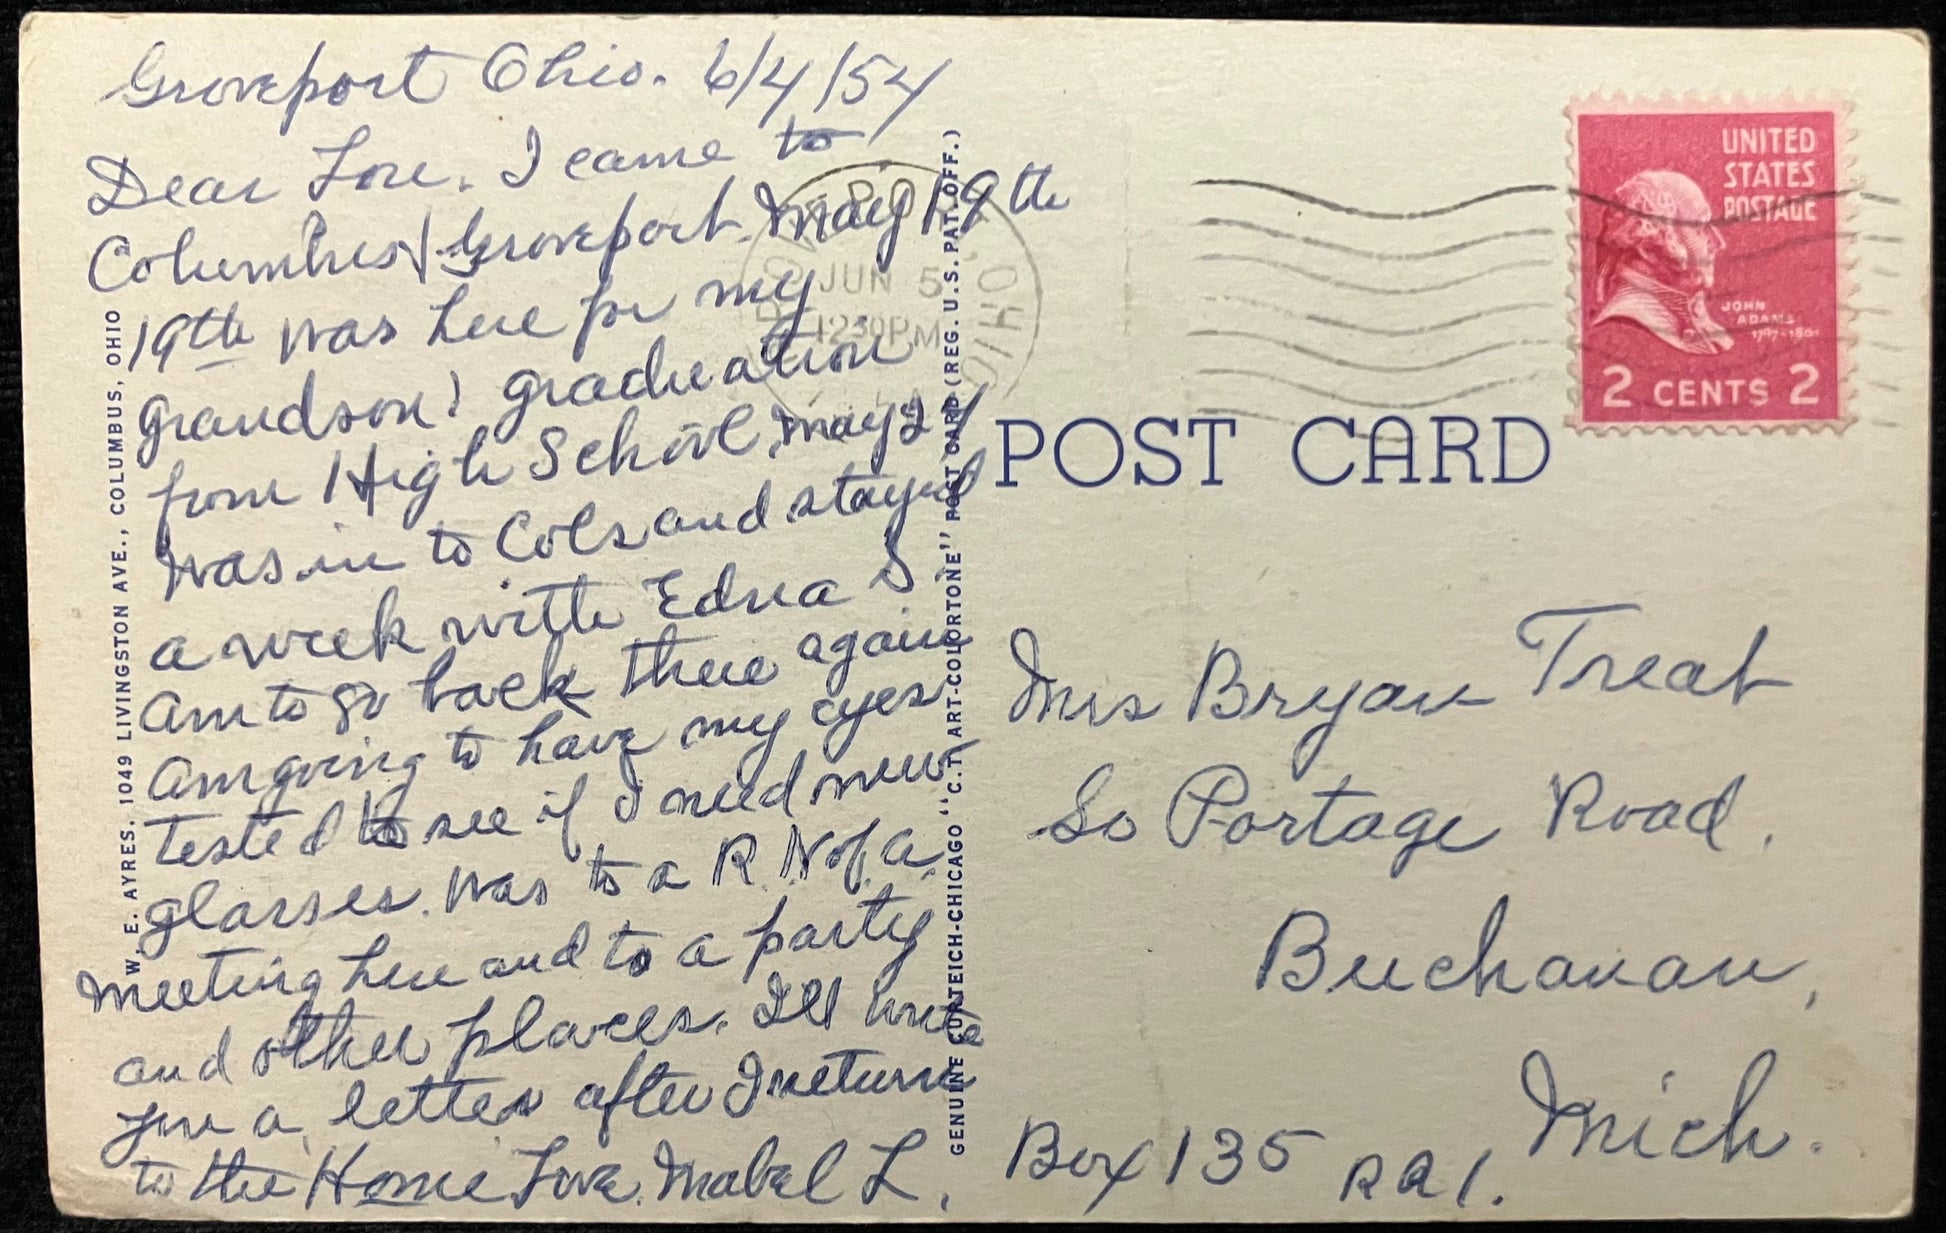 Groveport Ohio. 6/4/54
Dear Lou. I came to
Columbus & Groveport. May 19th
19th was here for my
grandson's graduation
from High School, May 21
was in to Cols and stayed
a week with Edna S.
am to go back there again
am going to have my eyes
tested to see if I need new
glasses. was to a R. N. of. a.
meeting here and to a party
and other places. I'll write
you a letter after I return
to the Home Love. Mabel L.
W. E. AYRES. 1049 LIVINGSTON AVE., COLUMBUS, OHIO
GENUINE CURTEICH-CHICAGO "C.T. ART-COLORTONE" POST CARD (REG. U.S. PAT. OFF.)
JUN 5
1230PM
OHIO
UNITED
STATES
POSTAGE
JOHN
ADAMS
1797-1801
2 CENTS 2
POST CARD
Mrs Bryan Treat
So Portage Road.
Buchanan,
Mich.
Box 135 RR1.